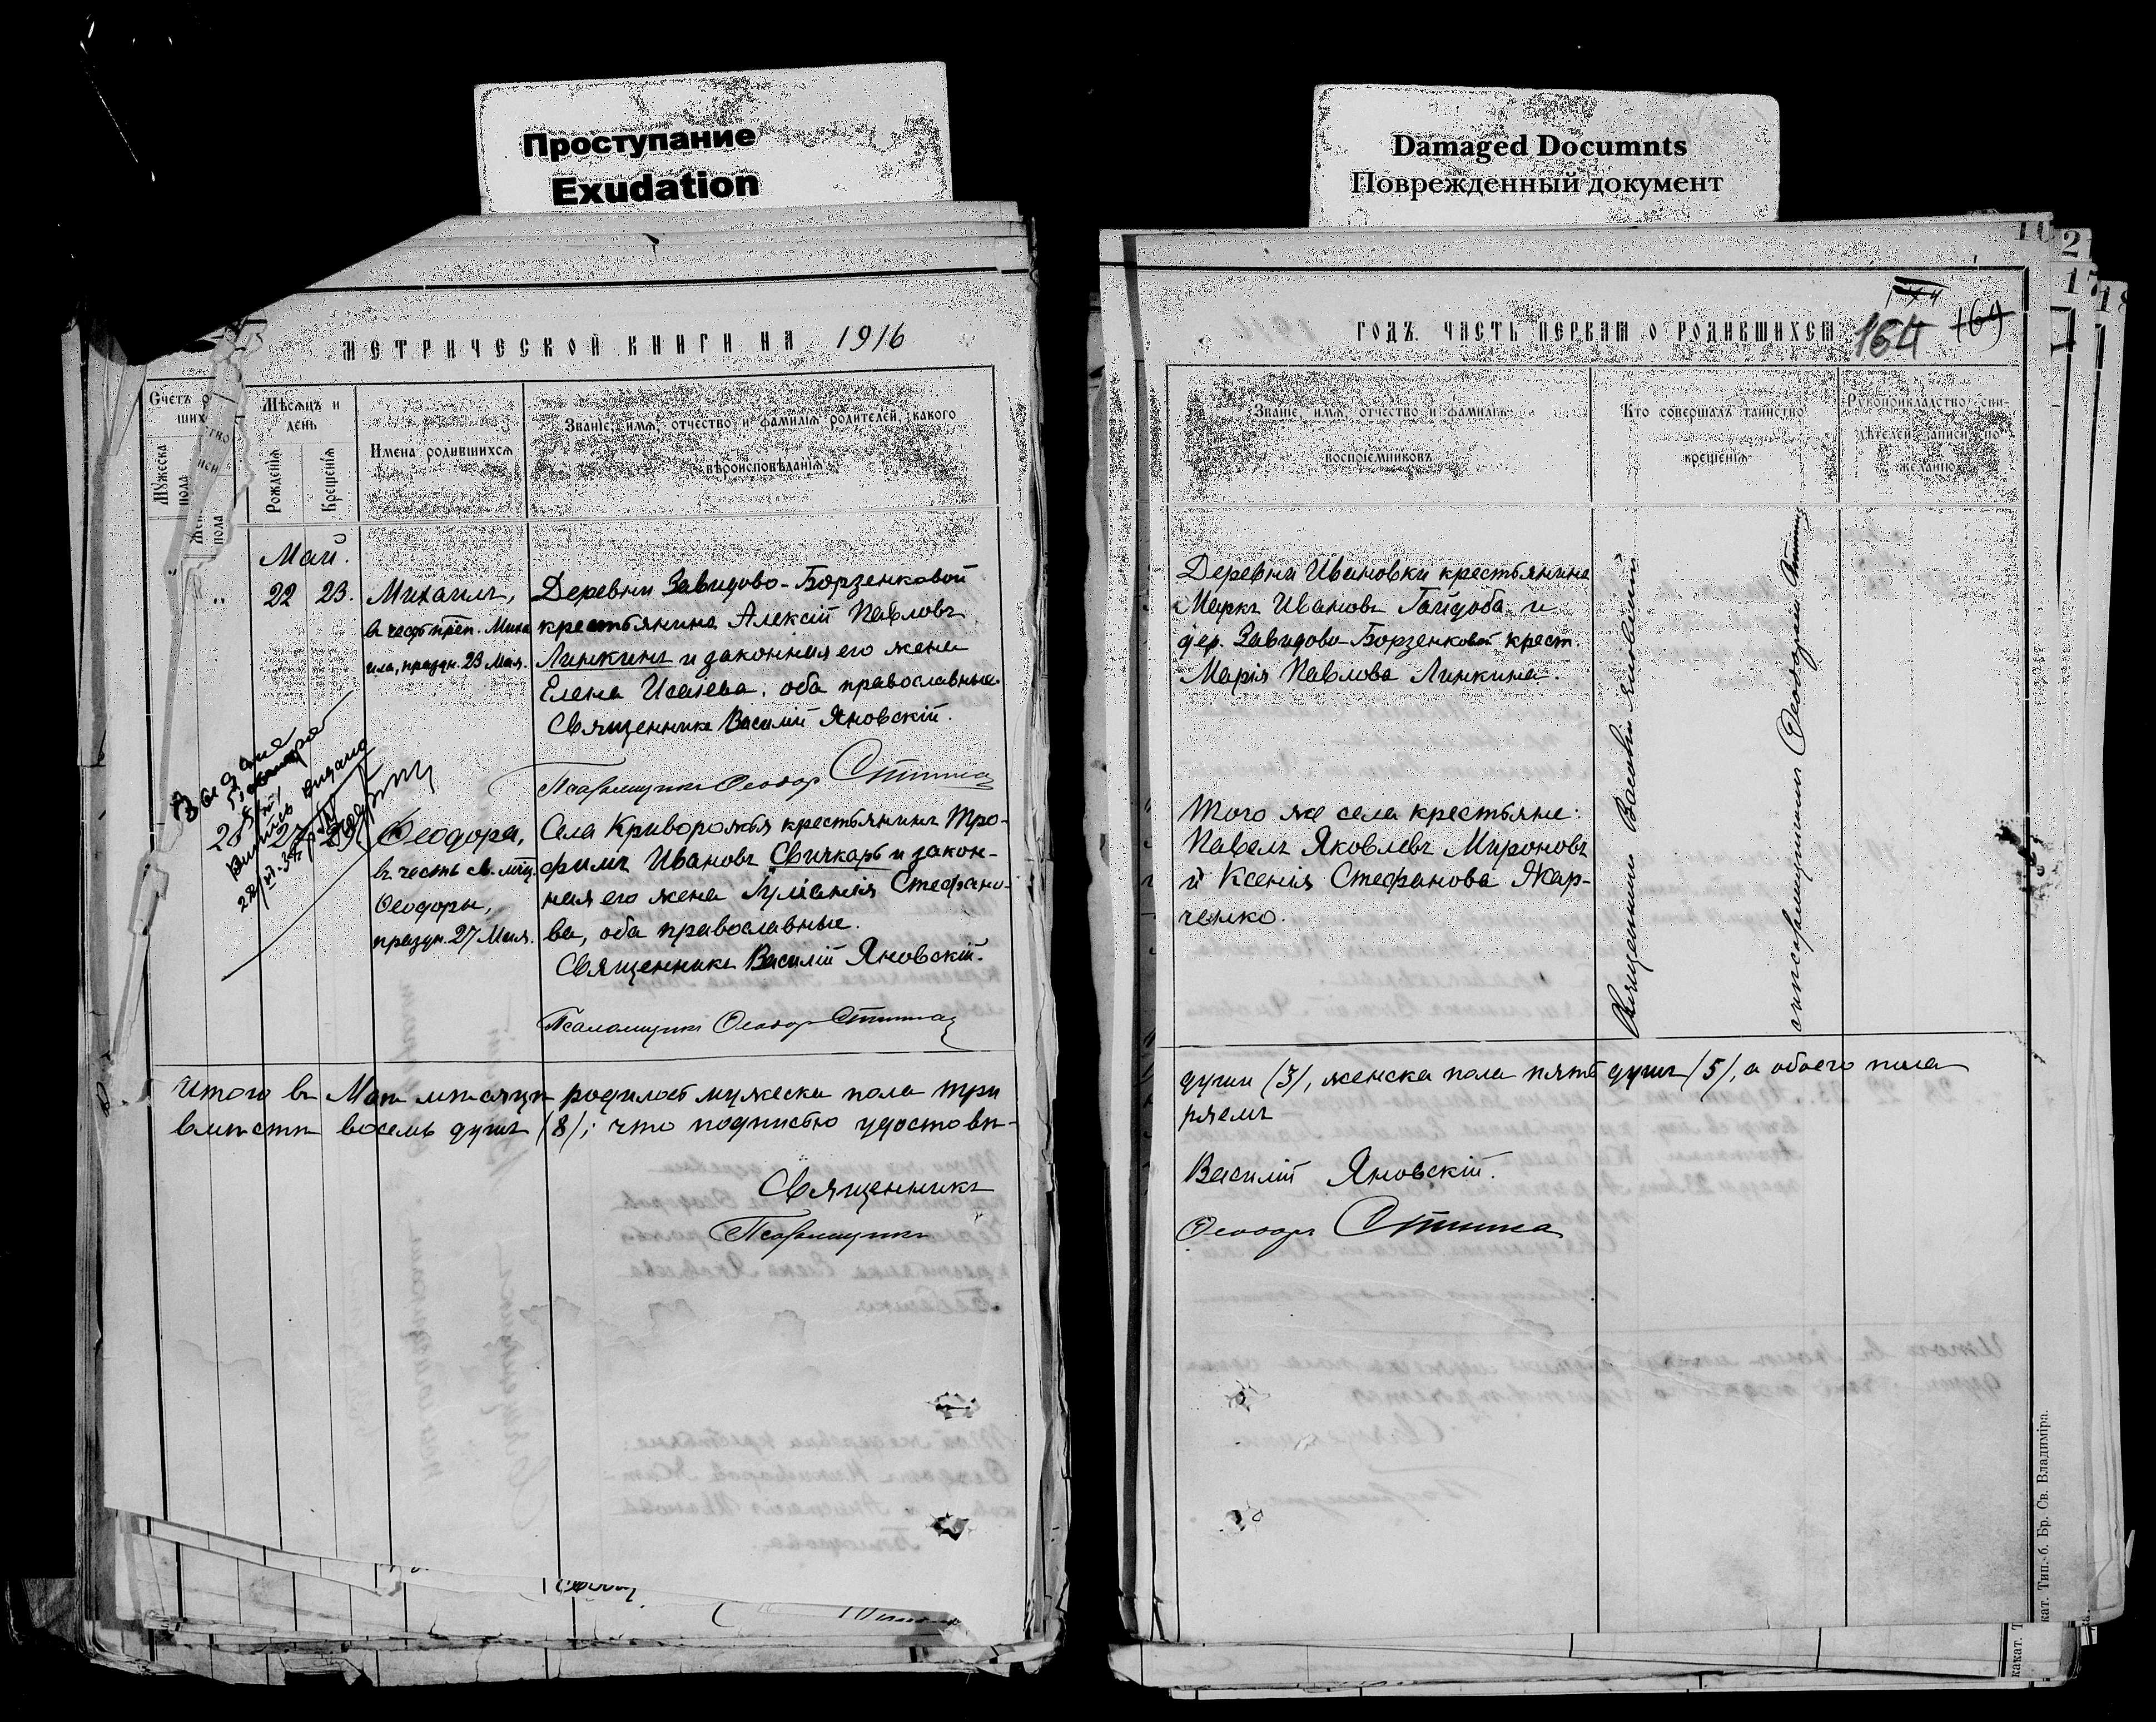 Проступание
Exudation
Damaged Documnts
Поврежденный документ
МЕТРИЧЕСКОЙ КНИГИ НА 1916
Счетъ
ших
Мужеска пола
пола
Мѣсяцъ и день
Рожденія
Крещенія
Имена родившихся
Званіе, имя, отчество и фамилія родителей, какого
вѣроисповѣданія
Май.
22 23. Михаилъ,
въ честь преп. Миха
ила, праздн. 23 Мая.
Деревни Завидово-Борзенковой
крестьянинъ Алексій Павловъ
Линкинъ и законная его жена
Елена Исаіева, оба православные.
Священникъ Василій Яновскій.
Псаломщикъ Ѳеодоръ
28
27 29
Ѳеодора,
въ честь св. мчц.
Ѳеодоры,
праздн. 27 Мая.
Села Криворожья крестьянинъ Тро-
фимъ Ивановъ Свичкарь и закон-
ная его жена Іуліанія Стефано-
ва, оба православные.
Священникъ Василій Яновскій.
Псаломщикъ Ѳеодоръ
Итого въ Маѣ мѣсяцѣ родилось мужеска пола три
вмѣстѣ восемь душъ (8); что подписью удостовѣ-
Священникъ
Псаломщикъ
ГОДЪ. ЧАСТЬ ПЕРВАЯ О РОДИВШИХСЯ
164 169
Званіе, имя, отчество и фамилія
воспріемниковъ
Кто совершалъ таинство
крещенія
Рукоприкладство сви-
дѣтелей записи по
желанію
Деревни Ивановки крестьянинъ
Маркъ Ивановъ Гайдоба и
дер. Завидово-Борзенковой крест.
Марія Павлова Линкина.
Того же села крестьяне:
Павелъ Яковлевъ Мироновъ
и Ксенія Стефанова Жар-
ченко.
Священникъ Василій Яновскій
съ псаломщикомъ Ѳеодоромъ
души (3), женска пола пять душъ (5), а обоего пола
ряемъ
Василій Яновскій.
Ѳеодоръ
кат. Тип.-б. Бр. Св. Владиміра.